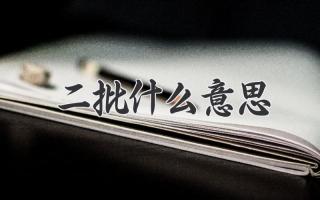 二批什么意思